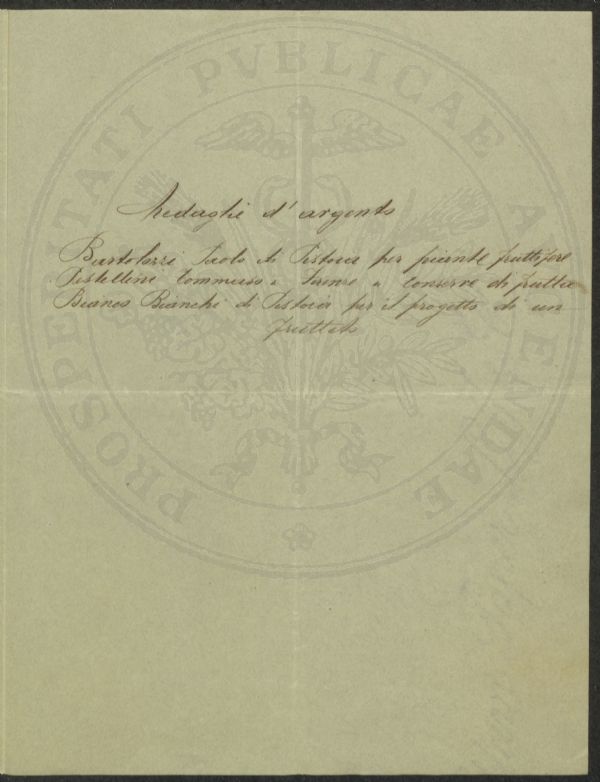 PROSPERITATI PVBLICAE AVGENDAE
Medaglie d'argento
Bartolozzi Paolo di Pistoia per piante fruttifere
Pestellini Tommaso " Firenze " conserve di frutta
Bianco Bianchi di Pistoia per il progetto di un
frutteto